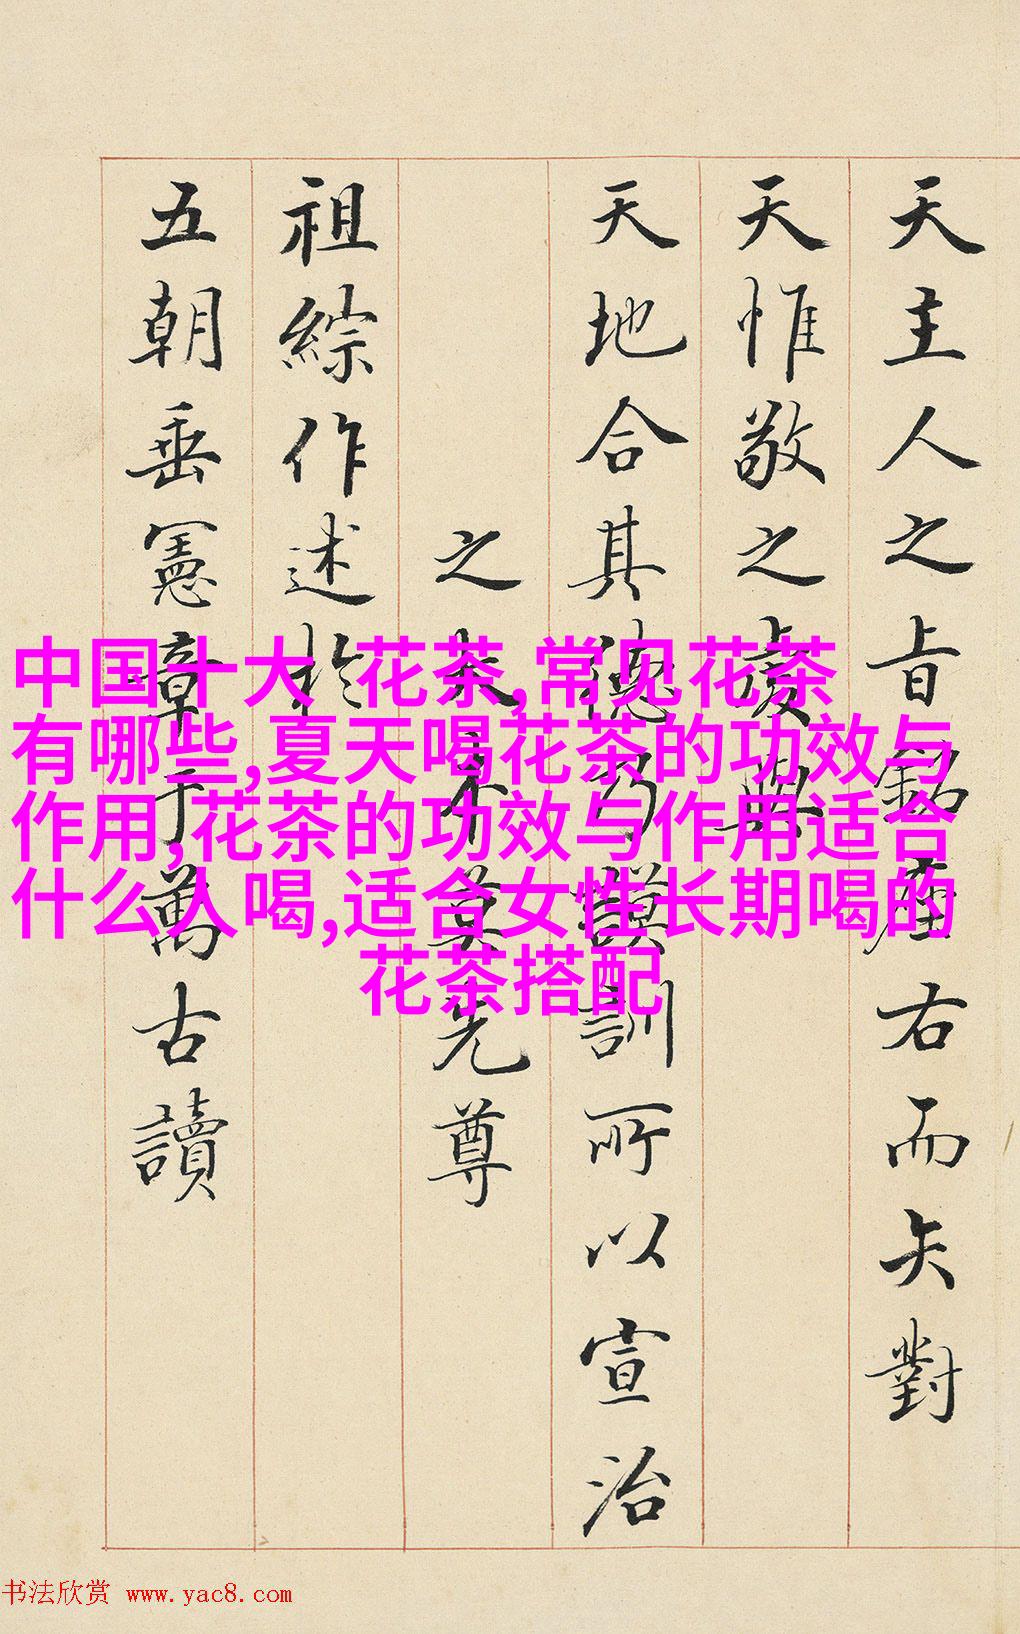 天主人之旨銘座右而矢對
天惟敬之處與
天地合其德乃謨訓所以宣治
之大本莫先尊
祖綜作述於
五朝垂憲章于萬古讀
中国十大 花茶,常见花茶
有哪些,夏天喝花茶的功效与
作用,花茶的功效与作用适合
什么人喝,适合女性长期喝的
花茶搭配
书法欣赏 www.yac8.com